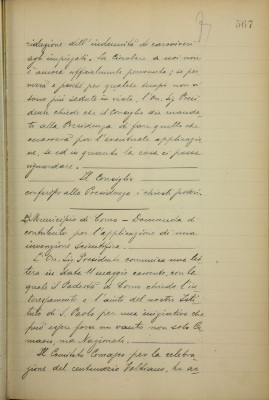 567
duzione dell'indennità di caroviveri
agli impiegati. La circolare a noi non
è ancora ufficialmente pervenuta; se per
verrà e poichè per qualche tempo non vi
sono più sedute in vista, l'On. Sig. Presi
dente chiede che il Consiglio dia manda
to alla Presidenza di fare quello che
occorrerà per l'eventuale applicazio
ne, se ed in quanto la cosa ci possa
riguardare.
Il Consiglio
conferisce alla Presidenza i chiesti poteri.
Municipio di Como - Domanda di
contributo per l'applicazione di una
invenzione scientifica.
L'On. Sig. Presidente comunica una let
tera in data 11 maggio corrente, con la
quale il Podestà di Como chiede l'in
teressamento e l'aiuto del nostro Isti
tuto di S. Paolo per una iniziativa che
può essere fonte di vanto non solo Co
masco, ma Nazionale.
Il Comitato Comasco per la celebra
zione del centenario Voltiano, ha as